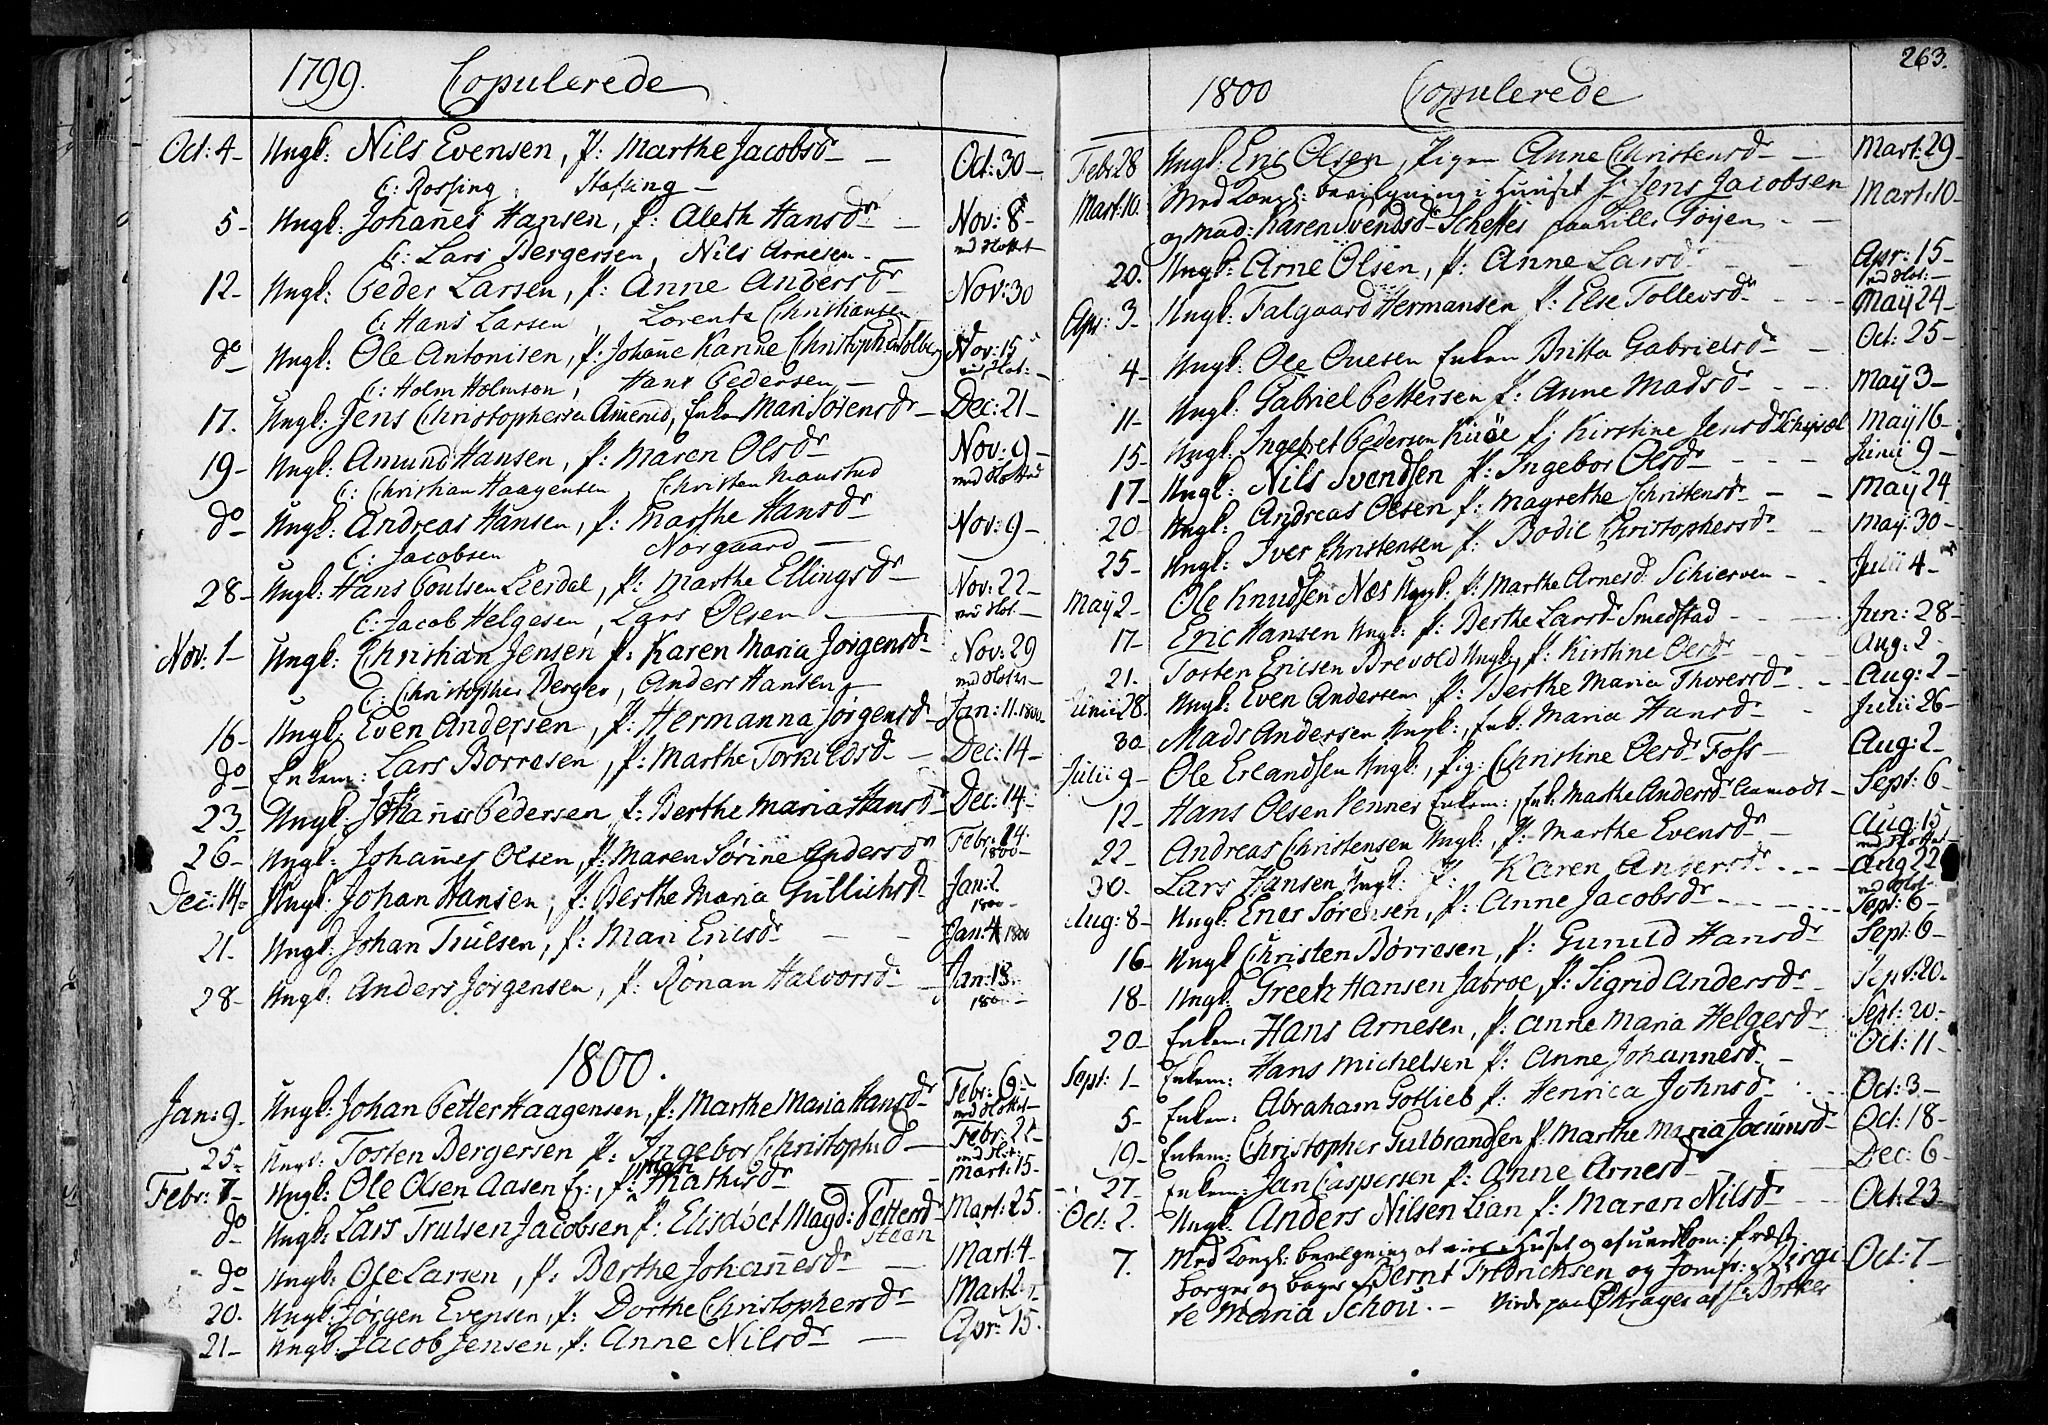 1799. Copulerede
Oct: 4- Ungk: Nils Evensen, P: Marthe Jacobsdr - Oct: 30-
C: Rossing, Stafsing -
5- Ungk: Johannes Hansen, P: Aleth Hansdr - Nov: 8-
C: Lars Bergersen, Nils Arnesen - med Attest
12- Ungk: Peder Larsen, P: Anne Andersdr - Nov: 30
C: Hans Larsen, Lorents Christiansen
do Ungk: Ole Antonisen, P: Johane Karine Christophersdr Nov: 15
C: Holm Holmson, Hans Pedersen -
17. Ungk: Jens Christophersen, Enken Mari Sørensdr - Dec: 21-
19- Ungk: Amund Hansen, P: Maren Olsdr Nov: 9-
C: Christian Haagensen Christen
do Ungk: Andreas Hansen, P: Marthe Hansdr Nov: 9-
C: Jacobsen Norgaard -
28- Ungk: Hans Poulsen Leerdal, P: Marthe Ellingsdr Nov: 22-
C: Jacob Helgesen, Lars Olsen
Nov: 1- Ungk: Christian Jensen P: Karen Maria Jørgensdr Nov: 29
C: Christopher Berger, Anders Hansen -
16- Ungk: Even Andersen, P: Hermanna Jørgensdr Jan: 11. 1800-
do Enkem: Lars Borresen, P: Marthe Torkildsdr - Dec: 14-
23- Ungk: Johannes Pedersen P: Berthe Maria Hansdr Dec: 14-
26- Ungk: Johannes Olsen, P: Maren Sørine Andersdr Febr: 14. 1800-
Dec: 14- Ungk: Johan Hansen, P: Berthe Maria Gullichsdr Jan: 2. 1800-
21- Ungk: Johan Trulsen, P: Mari Ericsdr - Jan: 4 1800
28- Ungk: Anders Jørgensen, P: Rønau Halvorsdr - Jan: 18. 1800-
1800.
Jan: 9- Ungk: Johan Petter Haagensen, P: Marthe Maria Hansdr Febr: 6-
25- Ungk: Tosten Bergersen P: Ingebor Christophdr - Febr: 22-
Febr: 7- Ungk: Ole Olsen Aasen P: Mari Mathisdr - Mart: 15-
do Ungk: Lars Trulsen Jacobsen P: Elisabet Magd: Pettersdr Mart: 25.
Steen
do Ungk: Ole Larsen, P: Berthe Johannesdr - Mart: 4-
20. Ungk: Jørgen Evensen, P: Dorthe Christophersdr Mart:
21- Ungk: Jacob Jensen, P: Anne Nilsdr - Apr: 15.
263.
1800 Copulerede
Febr: 28 Ungk: Eric Olsen, Pigen Anne Christensdr - Mart: 29-
Mart: 10. Med Kongl: bevilgning i Huuset Hr Jens Jacobsen Mart: 10-
og Mad: Karen Svendsdr Scheftes Tøyen
20. Ungk: Arne Olsen, P: Anne Larsdr - Apr: 15-
Apr: 3- Ungk: Falgaard Hermansen P: Else Tollevsdr - May 24-
4- Ungk: Ole Ouesen Enken Britta Gabrielsdr - Oct: 25-
11- Ungk: Gabriel Pettersen P: Anne Madsdr - May 3-
15- Ungk: Ingebret Pedersen P: Kirstine Jensdr May 16-
17- Ungk: Nils Svendsen P: Ingebor Olsdr - Junii 9-
20- Ungk: Andreas Olsen P: Magrethe Christensdr - May 24
25- Ungk: Iver Christensen P: Bodil Christophersdr - May: 30-
May 2- Ole Knudsen Næs Ungk: P: Marthe Arnesdr Schierven - Julii 4-
17- Eric Hansen Ungk: P: Berthe Larsdr Smedstad - Jun: 28-
21. Tosten Ericsen Brevold Ungk: P: Kirstine Olsdr - Aug: 2-
Junii 28. Ungk: Even Andersen, P: Berthe Maria Thoresdr - Aug: 2-
30. Mads Andersen Ungk:, Enk: Maria Hansdr - Julii 26-
Julii 9- Ole Erlandsen Ungk:, Pig: Christine Olsdr Foss - Aug: 2-
12- Hans Olsen Venner Enkem:, Enk: Marthe Andersdr Aamodt - Sept: 6-
22- Andreas Christensen Ungk:, P: Marthe Evensdr - Aug: 15
30- Lars Hansen Ungk: P: Karen Andersdr - Aug 22
Aug: 8- Ungk: Ener Sørensen, P: Anne Jacobsdr - Sept: 6-
16- Ungk Christen Børresen, P: Gunild Hansdr Sept: 6-
18- Ungk: Greetz Hansen Jabroe, P: Sigrid Andersdr Sept: 20.
20- Enkem: Hans Arnesen, P: Anne Maria Helgesdr Sept: 20-
Sept: 1- Enkem: Hans Michelsen P: Anne Johannesdr - Oct: 11-
5- Enkem: Abraham Gotlieb P: Henrica Johnsdr Oct: 3-
19- Enkem: Christopher Gulbrandsen P: Marthe Maria Jocumsdr Oct: 18-
27- Enkem: Jan Caspersen P: Anne Arnesdr Dec: 6-
Oct: 2. Ungk: Anders Nilsen Lian P: Maren Nilsdr - Oct: 23
7. Med Kongl: bevilgning at vies i Huset og af Præst Oct: 7-
Borger og Bager Bernt Fredrichsen og Jomfr: Birgi-
te Maria Schou. - Viede paa af Hr